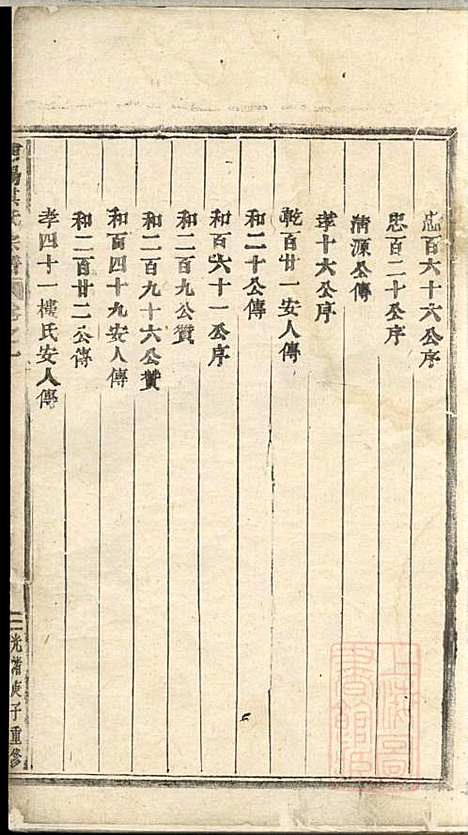 忠百六十六公序
忠百二十公序
清源公傳
孝十六公序
乾百廿一安人傳
和二十公傳
和百六十一公序
和二百九公贊
和二百九十六公贊
和百四十九安人傳
和二百廿二公傳
孝四十一樓氏安人傳
氏宗譜
卷之一
二
光緒庚子重修
上海圖書館藏